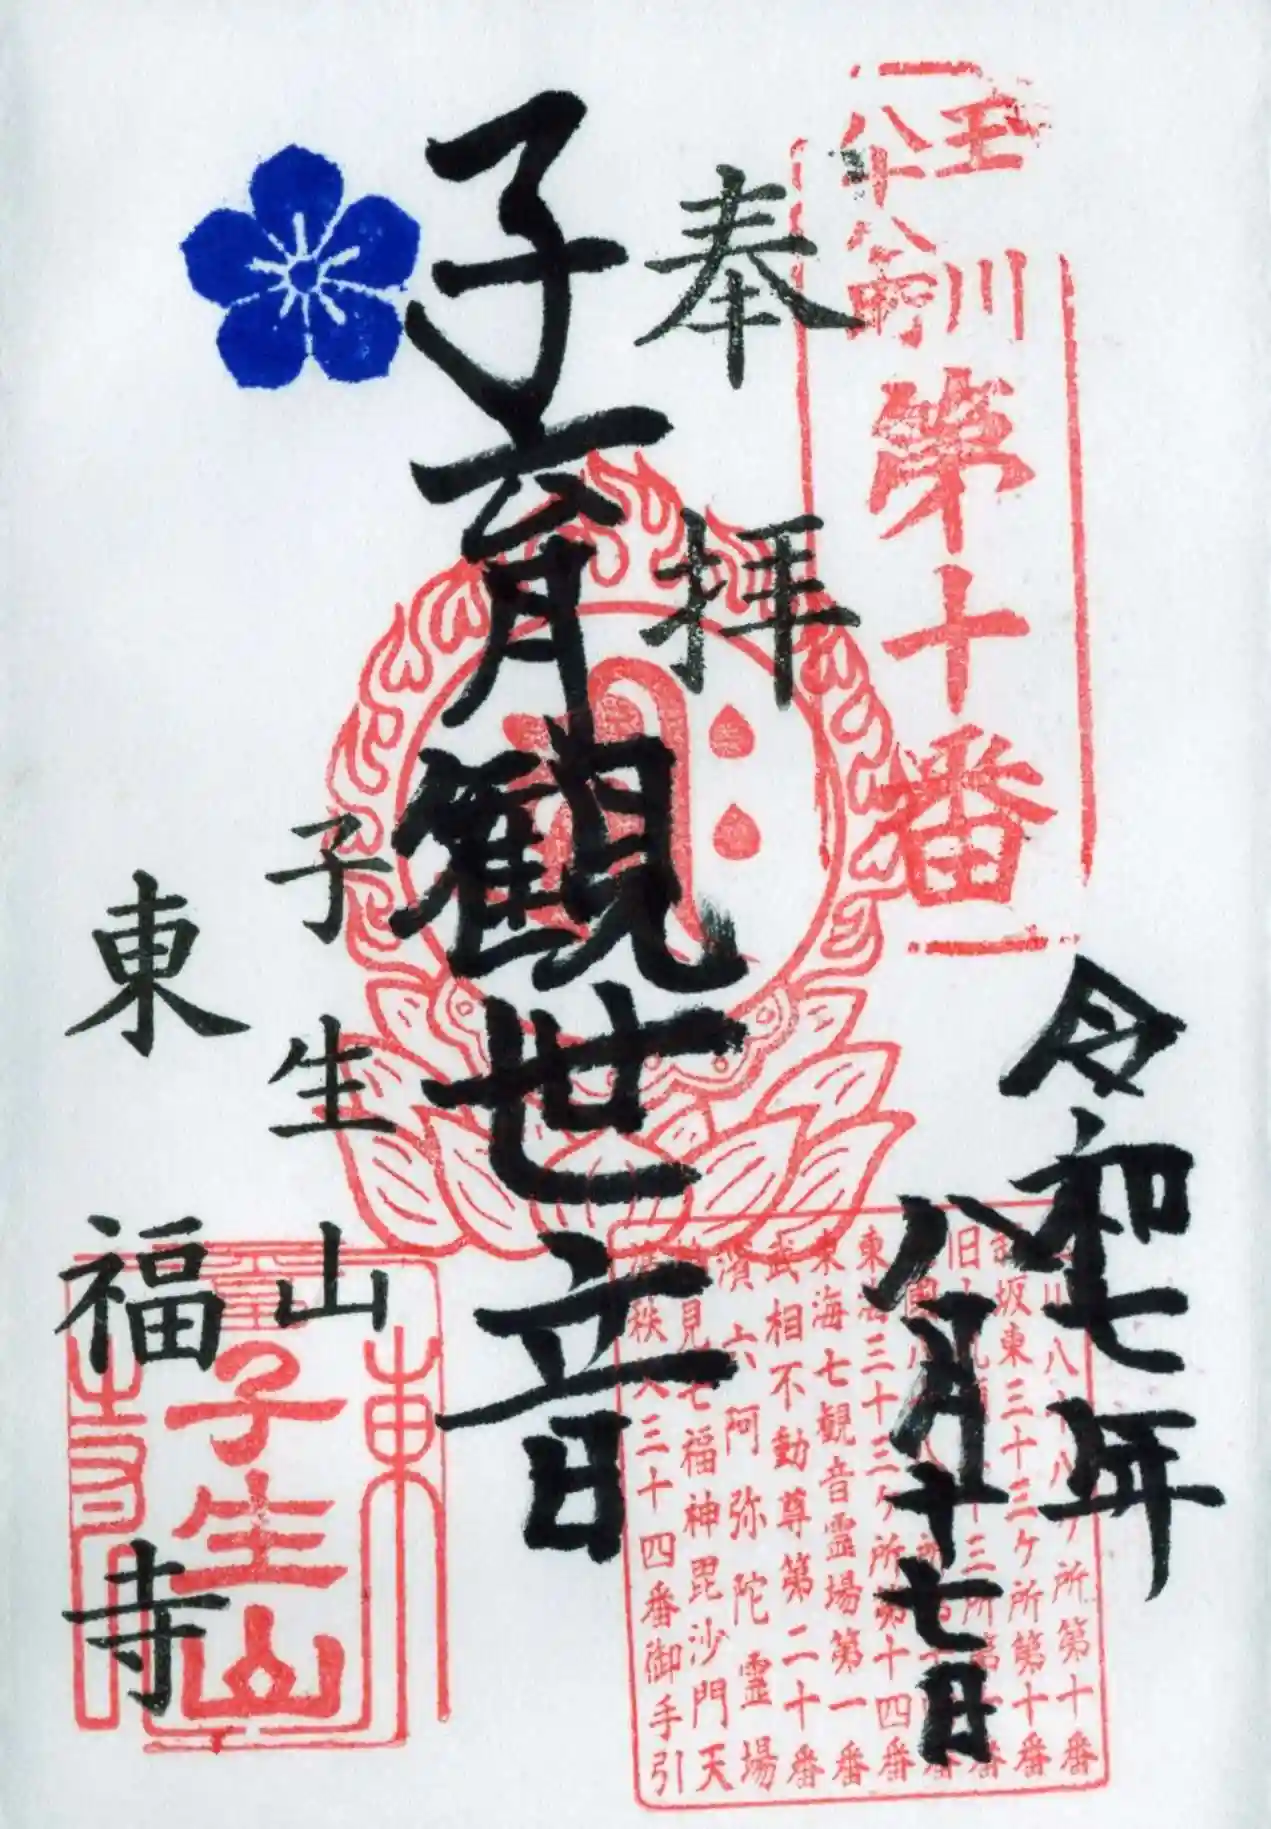 玉川
八十八ヶ所
第十番
奉拝
令和七年
八月十七日
子育観世音
子生山
東福寺
八十八ヶ所第十番
坂東三十三ヶ所第十番
東海三十三ヶ所第十四番
東海七観音霊場第一番
武相不動尊第二十番
濱六阿弥陀霊場
見七福神毘沙門天
秩父三十四番御手引
東
子生山
寺